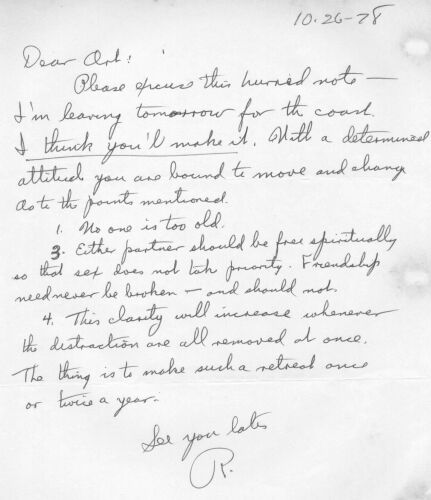 10-26-78
Dear Art:
Please excuse this hurried note —
I'm leaving tomorrow for th coast.
I think you'll make it. With a determined
attitude you are bound to move and change
as to the points mentioned.
1. No one is too old.
3. Either partner should be free spiritually
so that sex does not take priority. Friendship
need never be broken — and should not.
4. This clarity will increase whenever
the distraction are all removed at once.
The thing is to make such a retreat once
or twice a year.
See you later
R.